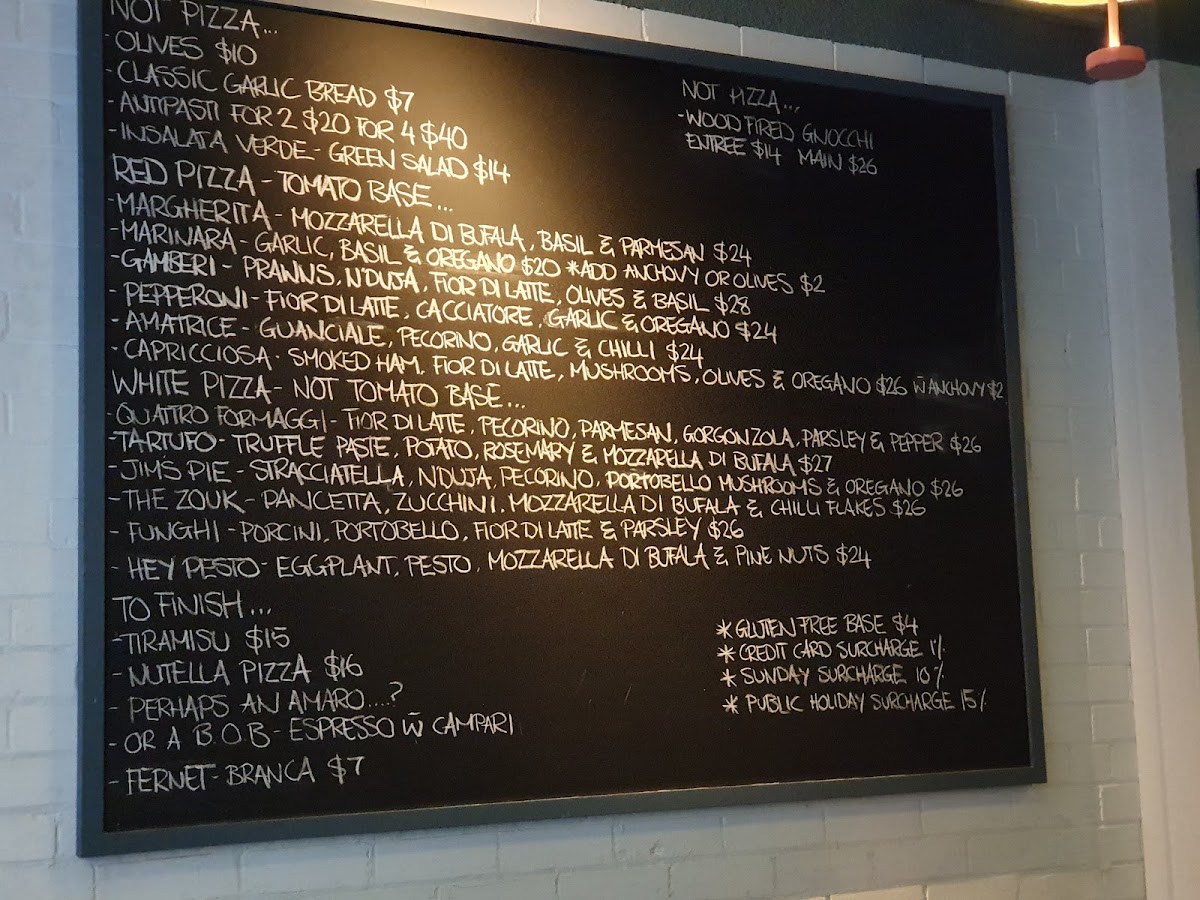 NOT PIZZA...
- OLIVES $10
- CLASSIC GARLIC BREAD $7
- ANTIPASTI FOR 2 $20 FOR 4 $40
- INSALATA VERDE - GREEN SALAD $14
NOT PIZZA...
- WOOD FIRED GNOCCHI
ENTREE $14 MAIN $26
RED PIZZA - TOMATO BASE...
- MARGHERITA - MOZZARELLA DI BUFALA, BASIL & PARMESAN $24
- MARINARA - GARLIC, BASIL & OREGANO $20 *ADD ANCHOVY OR OLIVES $2
- GAMBERI - PRAWNS, N'DUJA, FIOR DI LATTE, OLIVES & BASIL $28
- PEPPERONI - FIOR DI LATTE, CACCIATORE, GARLIC & OREGANO $24
- AMATRICE - GUANCIALE, PECORINO, GARLIC & CHILLI $24
- CAPRICCIOSA - SMOKED HAM, FIOR DI LATTE, MUSHROOMS, OLIVES & OREGANO $26 W̄ ANCHOVY $2
WHITE PIZZA - NOT TOMATO BASE...
- QUATTRO FORMAGGI - FIOR DI LATTE, PECORINO, PARMESAN, GORGONZOLA, PARSLEY & PEPPER $26
- TARTUFO - TRUFFLE PASTE, POTATO, ROSEMARY & MOZZARELLA DI BUFALA $27
- JIMS PIE - STRACCIATELLA, N'DUJA, PECORINO, PORTOBELLO MUSHROOMS & OREGANO $26
- THE ZOUK - PANCETTA, ZUCCHINI, MOZZARELLA DI BUFALA & CHILLI FLAKES $26
- FUNGHI - PORCINI, PORTOBELLO, FIOR DI LATTE & PARSLEY $26
- HEY PESTO - EGGPLANT, PESTO, MOZZARELLA DI BUFALA & PINE NUTS $24
TO FINISH...
- TIRAMISU $15
- NUTELLA PIZZA $16
- PERHAPS AN AMARO....?
- OR A B.O.B - ESPRESSO W̄ CAMPARI
- FERNET - BRANCA $7
* GLUTEN FREE BASE $4
* CREDIT CARD SURCHARGE 1%
* SUNDAY SURCHARGE 10%
* PUBLIC HOLIDAY SURCHARGE 15%